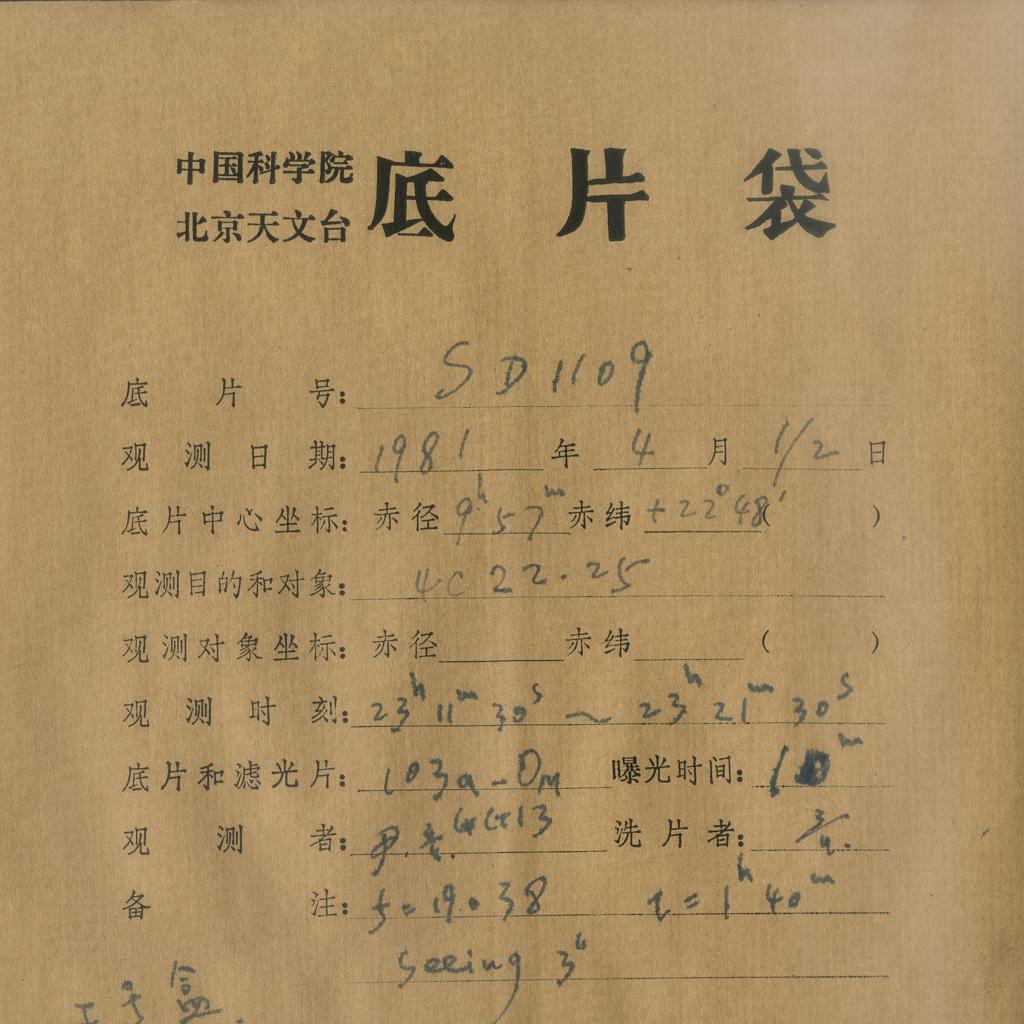 中国科学院
北京天文台 底片袋
底片号: SD1109
观测日期: 1981年4月1/2日
底片中心坐标: 赤径 9h 57m 赤纬 +22°48' ( )
观测目的和对象: 4C 22.25
观测对象坐标: 赤径 赤纬 ( )
观测时刻: 23h 11m 30s ~ 23h 21m 30s
底片和滤光片: 103a-O 曝光时间: 10m
观测者: GG13 洗片者:
备注: =19.38 t=1h 40m
Seeing 3"
号盒.